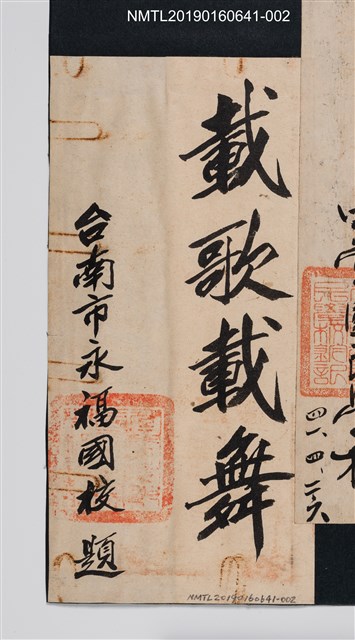 NMTL20190160641-002
載歌載舞
台南市永福國校 題
四一、四、二六
NMTL20190160641-002